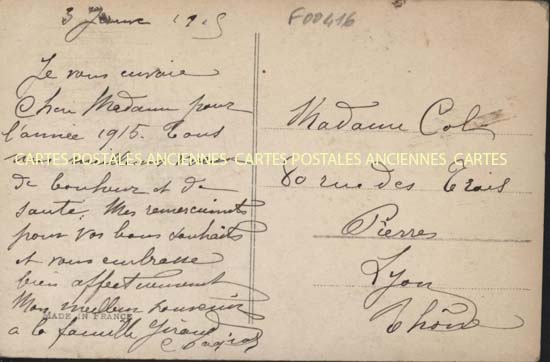 3 Janvier 1915
F00416
Je vous envoie
Chère Madame pour
l'année 1915. Tous
CARTES POSTALES ANCIENNES CARTES POSTALES ANCIENNES CARTES
de bonheur et de
santé. Mes remerciements
pour vos bons souhaits
et vous embrasse
bien affectueusement
Mon meilleur souvenir
MADE IN FRANCE
a la famille Giraud
Madame
80 rue des Trois
Pierres
Lyon
Rhône